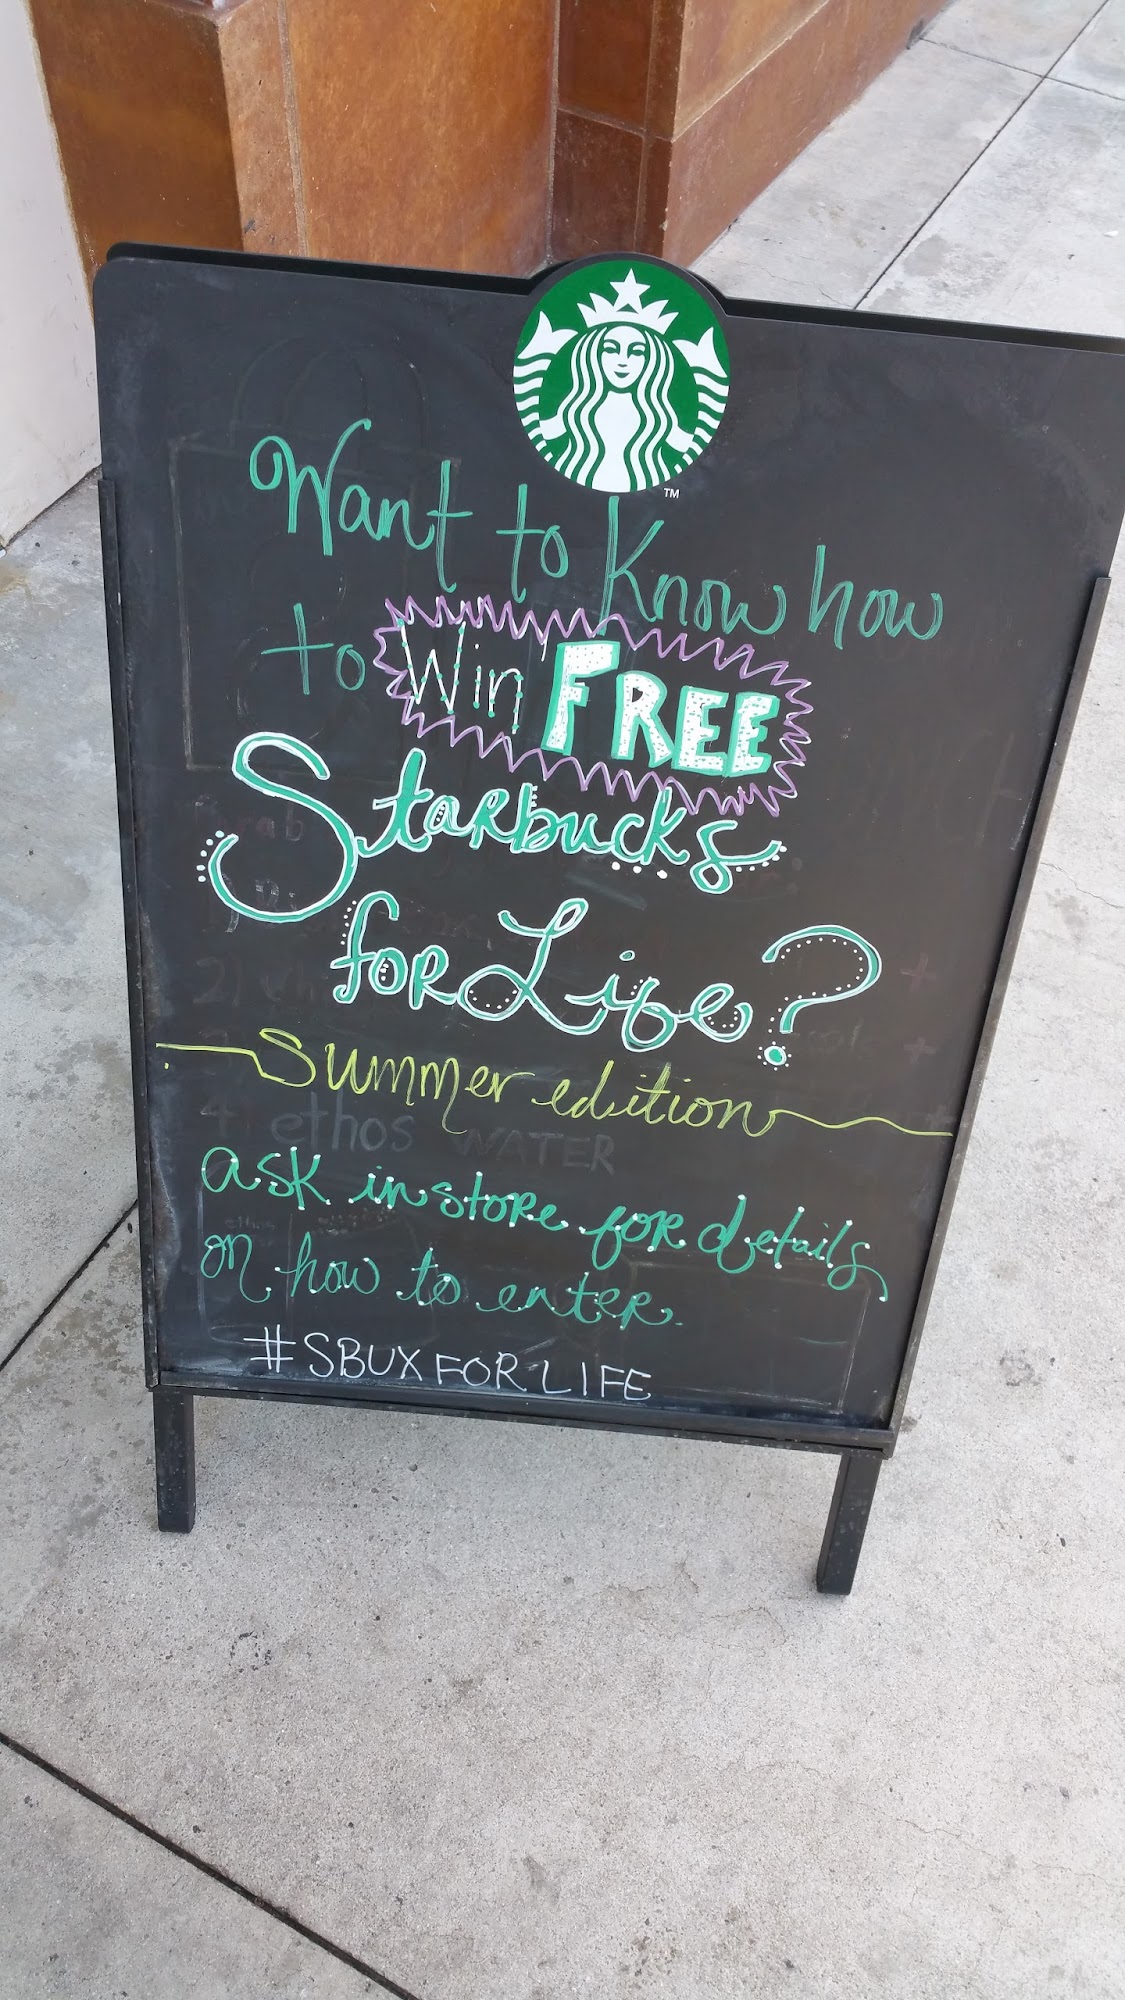 TM
Want to Know how
to Win FREE
Starbucks
for Life?
Summer edition
4) ethos WATER
ask in store for details
on how to enter.
#SBUXFORLIFE